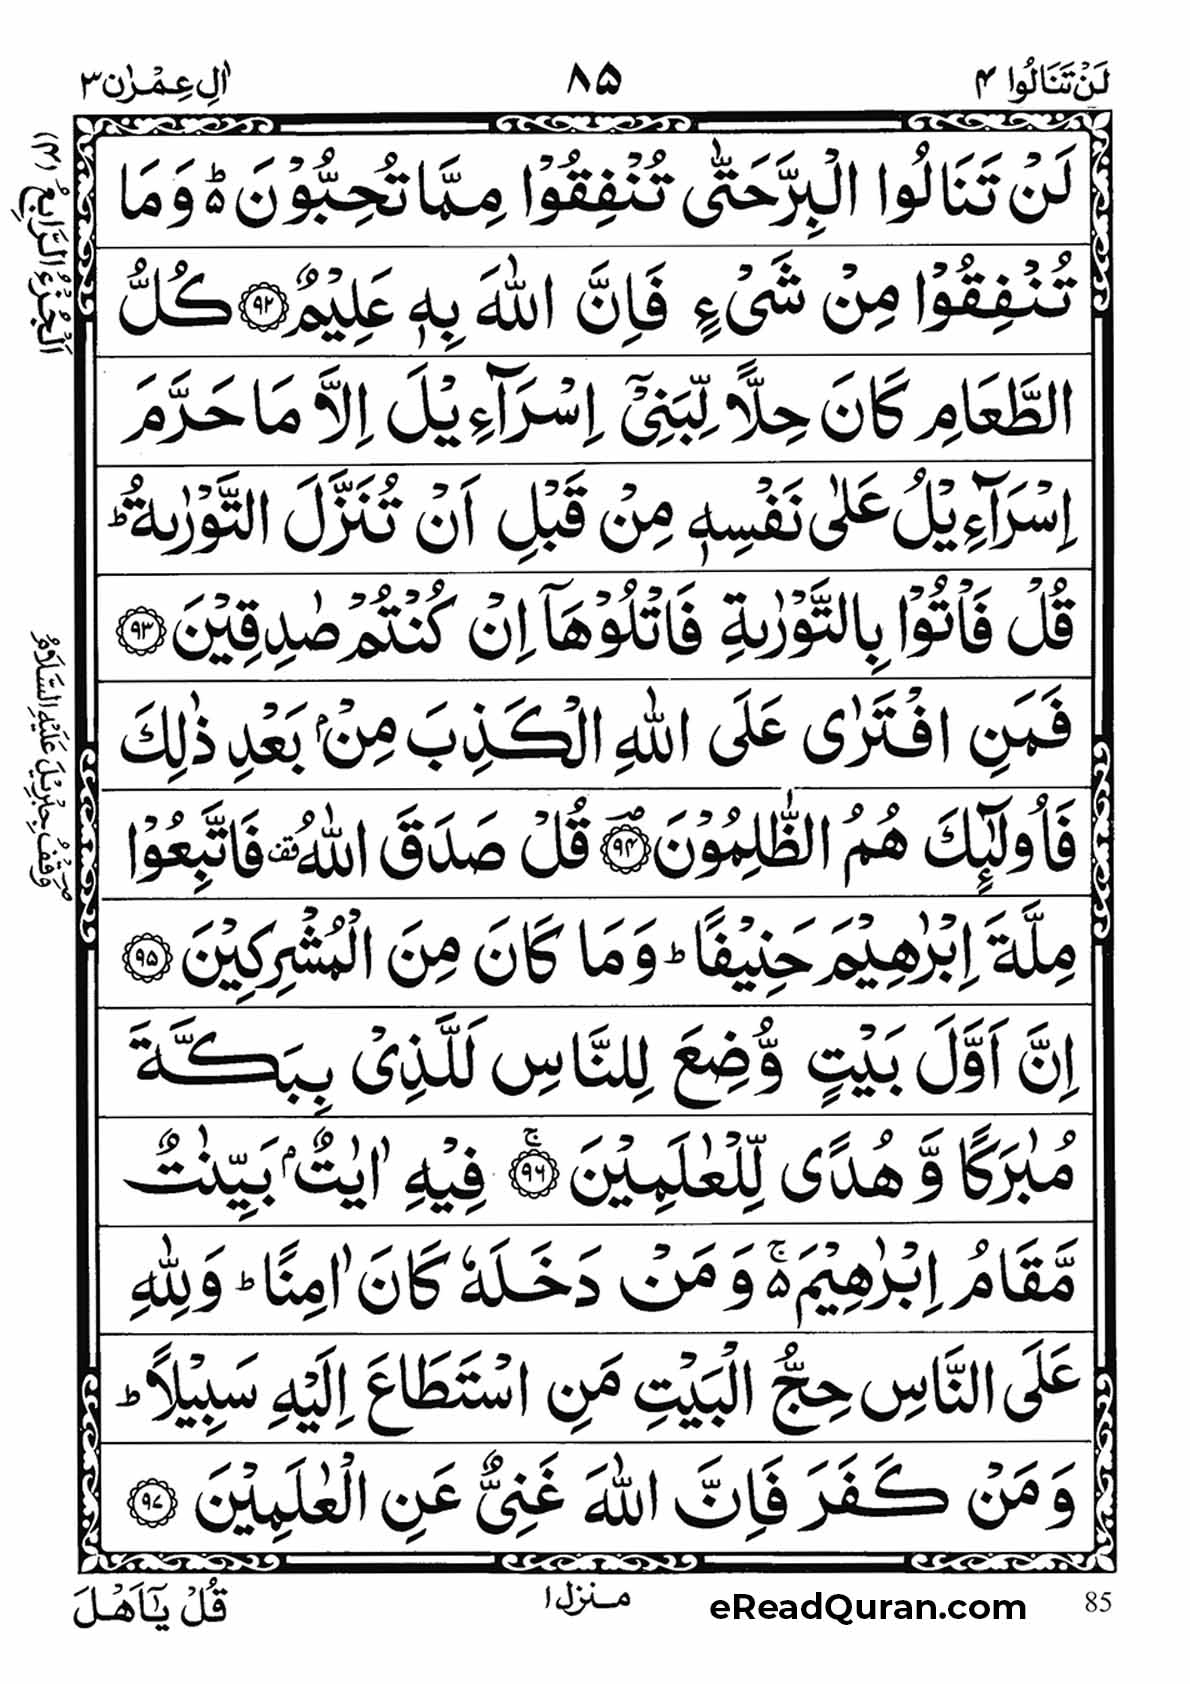 لَنْ تَنَالُوا ٤
٨٥
اٰلِ عِمْرٰن ٣
لَنْ تَنَالُوا الْبِرَّ حَتّٰى تُنْفِقُوْا مِمَّا تُحِبُّوْنَ ؕ۬ وَمَا
تُنْفِقُوْا مِنْ شَیْءٍ فَاِنَّ اللّٰهَ بِهٖ عَلِیْمٌ ﴿۹۲﴾ كُلُّ
الطَّعَامِ كَانَ حِلًّا لِّبَنِیْۤ اِسْرَآءِیْلَ اِلَّا مَا حَرَّمَ
اِسْرَآءِیْلُ عَلٰى نَفْسِهٖ مِنْ قَبْلِ اَنْ تُنَزَّلَ التَّوْرٰىةُ ؕ
قُلْ فَاْتُوْا بِالتَّوْرٰىةِ فَاتْلُوْهَاۤ اِنْ كُنْتُمْ صٰدِقِیْنَ ﴿۹۳﴾
فَمَنِ افْتَرٰى عَلَى اللّٰهِ الْكَذِبَ مِنْۢ بَعْدِ ذٰلِكَ
فَاُولٰٓىِٕكَ هُمُ الظّٰلِمُوْنَ ﴿۹۴﴾ؔ قُلْ صَدَقَ اللّٰهُ ۫ فَاتَّبِعُوْا
مِلَّةَ اِبْرٰهِیْمَ حَنِیْفًا ؕ وَمَا كَانَ مِنَ الْمُشْرِكِیْنَ ﴿۹۵﴾
اِنَّ اَوَّلَ بَیْتٍ وُّضِعَ لِلنَّاسِ لَلَّذِیْ بِبَكَّةَ
مُبٰرَكًا وَّهُدًى لِّلْعٰلَمِیْنَ ﴿۹۶﴾ۚ فِیْهِ اٰیٰتٌۢ بَیِّنٰتٌ
مَّقَامُ اِبْرٰهِیْمَ ۚ۬ وَمَنْ دَخَلَهٗ كَانَ اٰمِنًا ؕ وَلِلّٰهِ
عَلَى النَّاسِ حِجُّ الْبَیْتِ مَنِ اسْتَطَاعَ اِلَیْهِ سَبِیْلًا ؕ
وَمَنْ كَفَرَ فَاِنَّ اللّٰهَ غَنِیٌّ عَنِ الْعٰلَمِیْنَ ﴿۹۷﴾
اَلْجُزْءُ الرَّابِعُ (۴)
وَقْفُ جِبْرِیْلَ عَلَیْهِ السَّلَامُ
قُلْ یٰۤاَهْلَ
منزل ١
eReadQuran.com
85